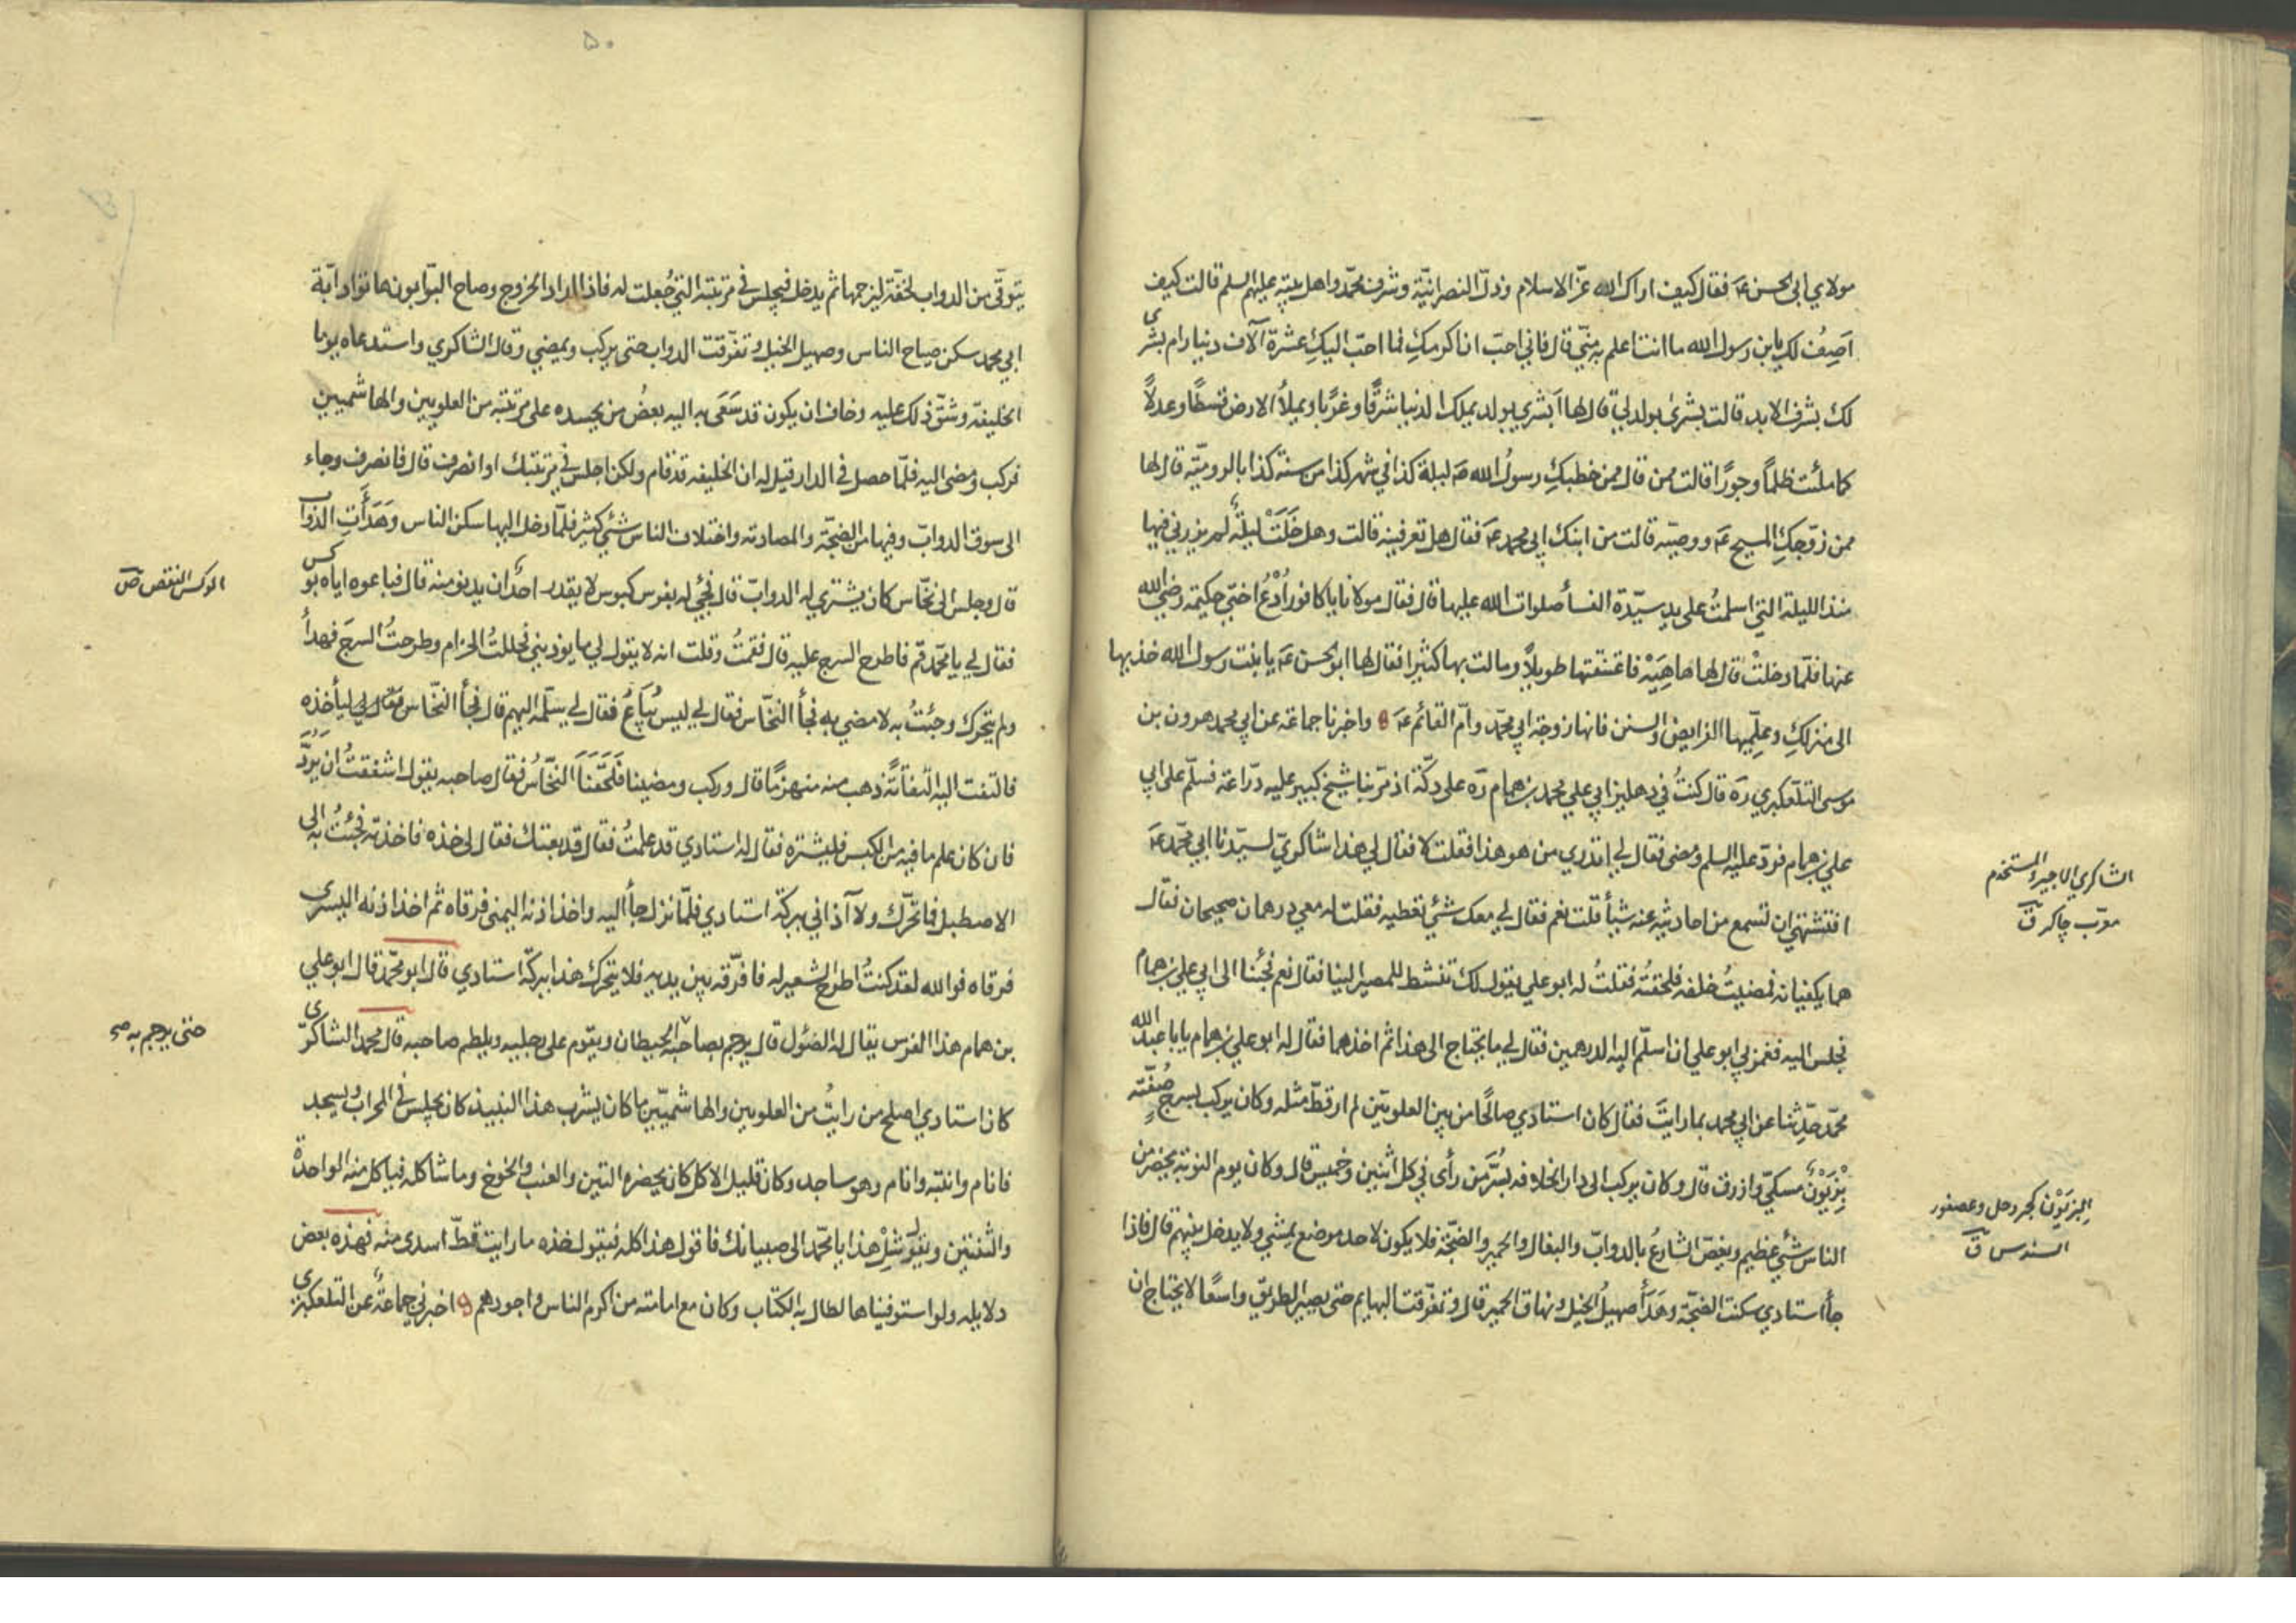 مولاي ابي الحسن عۤ فقال كيف اراك الله عزّ الاسلام وذلّ النصرانيّة وشرف محمّد واهل بيته عليهم السلم قالت كيف
اَصِفُ لك يابن رسول الله ما انت اعلم به منّي قال فاني احبّ ان اكرمكِ فما احبّ اليكِ عشرة آلاف دينار ام بشرى
لك بشرف الابد قالت بشرى بولد لي قال لها اَبشري بولد يملك الدنيا شرقًا وغربًا ويملأُ الارض قسطًا وعدلاً
كما ملئت ظلمًا وجورًا قالت ممن قال ممن خطبكِ رسولُ الله صۤ ليلة كذا في شهر كذا من سنة كذا بالروميّة قال لها
ممن زوّجكِ المسيح عۤ ووصيّه قالت من ابنك ابي محمد عۤ فقال هل تعرفينه قالت وهل خَلَتْ ليلةٌ لم يزرني فيها
منذ الليلة التي اسلمتُ على يد سيّدة النسأ صلوات الله عليها قال فقال مولانا يا كافور اُدْعُ اختي حكيمة رضي الله
عنها فلمّا دخلتْ قال لها ها هِيَهْ فاعتنقتها طويلاً ومالت بها كثيرا فقال لها ابو الحسن عۤ يا بنت رسول الله خذيها
الى منزلكِ وعلّميها الفرايض والسنن فانها زوجة ابي محمّد وامّ القائم عۤ واخبرنا جماعة عن ابي محمد هرون بن
موسى التلعكبري رۤه قال كنتُ في دهليز ابي علي محمد بن همام رۤه على دكّة اذ مرّ بنا شيخ كبير عليه درّاعة فسلّم على ابي
علي بن همام فردّ عليه السلم ومضى فقال لي اتدري من هو هذا فقلت لا فقال لي هذا شاكريّ لسيّدنا ابي محمّد عۤ
افتشتهي ان تسمع من احاديثه عنه شيأ قلت نعم فقال لي معك شئ تعطيه فقلت له معي درهمان صحيحان فقال
هما يكفيانه فمضيتُ خلفه فلحقتُه فقلتُ له ابو علي يقول لك تنشط للمصير الينا فقال نعم فجئنا الى ابي علي بن همام
فجلس اليه فغمز لي ابو علي ان اسلّم اليه الدرهمين فقال لي ما يحتاج الى هذا ثم اخذهما فقال له ابو علي بن همام يابا عبد الله
محمّد حدِّثنا عن ابي محمد بما رايتَ فقال كان استادي صالحًا من بين العلويّين لم ار قطّ مثله وكان يركب بسرج صُفّته
بِزْيَوْنٌ مسكيّ وازرق قال وكان يركب الى دار الخلافه بسُرَّ مَن رأى في كل اثنين وخميس قال وكان يوم النوبة يحضر من
الناس شئ عظيم ويغصّ الشارعُ بالدوابّ والبغال والحمير والضجّة فلا يكون لاحد موضع يمشي ولا يدخل بينهم قال فاذا
جأ استادي سكنت الضجّة وهَدَأَ صهيلُ الخيل ونهاق الحمير قال وتفرّقت البهايم حتى يصير الطريق واسعًا لا يحتاج ان
الشاكري الاجير والمستخدم
معرّب چاكر ق
البِزْيَوْن كجردحل وعصفور
السندس ق
۵۰
يتوقّى من الدواب لخفّة ليزحمها ثم يدخل فيجلس في مرتبته التي جُعلت له فاذا اراد الخروج وصاح البوّابون هاتوا دابّة
ابي محمد سكن صياح الناس وصهيل الخيل وتفرّقت الدواب حتى يركب ويمضي وقال الشاكري واستدعاه يوما
الخليفة وشقّ ذلك عليه وخاف ان يكون قد سَعَى به اليه بعضُ من يحسده على مرتبته من العلويين والهاشميين
فركب ومضى اليه فلمّا حصل في الدار قيل له ان الخليفه قد قام ولكن اجلس في مرتبتك او انصرف قال فانصرف وجاء
الى سوق الدوابّ وفيها من الضجّة والمصادمة واختلاف الناس شئ كثير فلمّا دخل اليها سكن الناس وهَدَأَتِ الدوابّ
قال وجلس الى نخّاس كان يشتري له الدوابّ قال فجئي له بفرس كبوس لا يقدر احد ان يدنو منه قال فباعوه اياه بوكس
فقال لي يا محمّد قم فاطرح السرج عليه قال فقمتُ وقلت انه لا يقول لي ما يوذيني فحللتُ الحزام وطرحتُ السرجَ فهدأ
ولم يتحرك وجئتُ به لامضي به فجأ النخّاس فقال لي ليس يُباعُ فقال لي سلّمه اليهم قال فجأ النخّاس ليأخذه
فالتفت اليه التفاتةً ذهب منه منهزمًا قال وركب ومضينا فلَحِقَنَا النخّاسُ فقال صاحبه يقول اشفقتُ ان يُرَدَّ
فان كان علم ما فيه من الكبس فليشتره فقال له استادي قد علمتُ فقال قد بعتك فقال لي خذه فاخذته فجئتُ به الى
الاصطبل فما تحرّك ولا آذاني ببركة استادي فلمّا نزل جأ اليه واخذ اذنه اليمنى فرقاه ثم اخذ اذنه اليسرى
فرقاه فوالله لقد كنتُ اطرح الشعير له فافرّقه بين يديه فلا يتحرك هذا ببركة استادي قال ابو محمّد قال ابو علي
بن همام هذا الفرس يقال له الصَّؤل قال يرجم بصاحبه الحيطان ويقوم على رجليه ويلطم صاحبه قال محمد الشاكري
كان استادي اصلح من رايتُ من العلويين والهاشميّين ما كان يشرب هذا النبيذ كان يجلس في المحراب ويسجد
فانام وانتبه وانام وهو ساجد وكان قليل الاكل كان يحضره التين والعنب والخوخ وما شاكله فياكل منه الواحدة
والثنتين ويقول شِلْ هذا يا محمّد الى صبيانك فاقول هذا كله فيقول خذه ما رايت قطّ اسدى منه فهذه بعض
دلايله ولو استوفيناها لطال به الكتاب وكان مع امامته من اكرم الناس واجودهم اخبرني جماعةٌ عن التلعكبري
الوكس النقص ص
حتى يرجم به صح